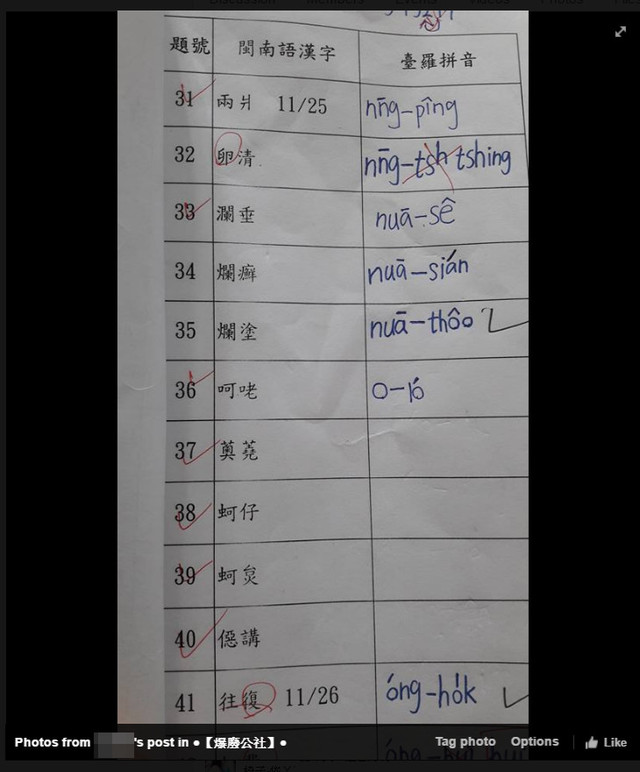 題號 閩南語漢字 臺羅拼音
31 兩爿 11/25 nn̄g-pîng
32 卵清 nn̄g-tsh tshing
33 瀾垂 nuā-sê
34 爛癬 nuā-sián
35 爛塗 nuā-thôo
36 呵咾 o-ló
37 薁蕘
38 蚵仔
39 蚵炱
40 僫講
41 往復 11/26 óng-ho̍k
Photos from 's post in ●【爆廢公社】● Tag photo Options Like